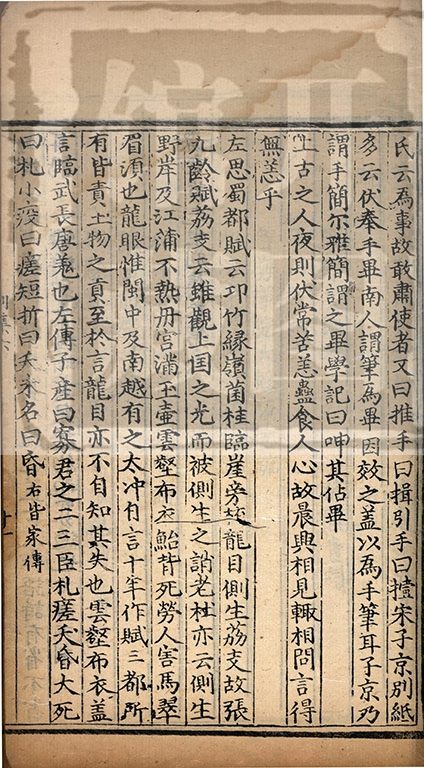 氏云為事故敢肅使者又曰推手曰揖引手曰撎宋子京別紙
多云伏奉手畢南人謂筆為畢因效之盖以為手筆耳子京乃
謂手簡尔雅簡謂之畢學記曰呻其佔畢
上古之人夜則伏常苦恙蠱食人心故晨興相見輙相問言得
無恙乎
左思蜀都賦云卭竹緣嶺菌桂臨崖旁挺龍目側生荔支故張
九齡賦荔支云雖觀上国之光而被側生之誚老杜亦云側生
野岸及江蒲不熟丹宮滿玉壷雲壑布衣鮐背死勞人害馬翠
眉須也龍眼惟閩中及南越有之太冲自言十年作賦三都所
有皆責土物之貢至於言龍目亦不自知其失也雲壑布衣盖
言臨武長唐羗也左傳子産曰寡君之二三臣札瘥夭昏大死
曰札小疫曰瘥短折曰夭未名曰昏右皆家傳
十一